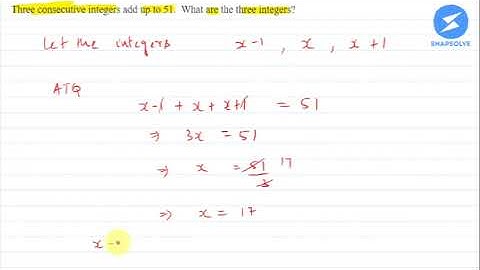 Three consecutive integers add up to 51. What are the three integers?
SNAPSOLVE
Let the integers x-1 , x , x+1
ATQ
x-1 + x + x+1 = 51
⇒ 3x = 51
⇒ x = 51/3 17
⇒ x = 17
x -